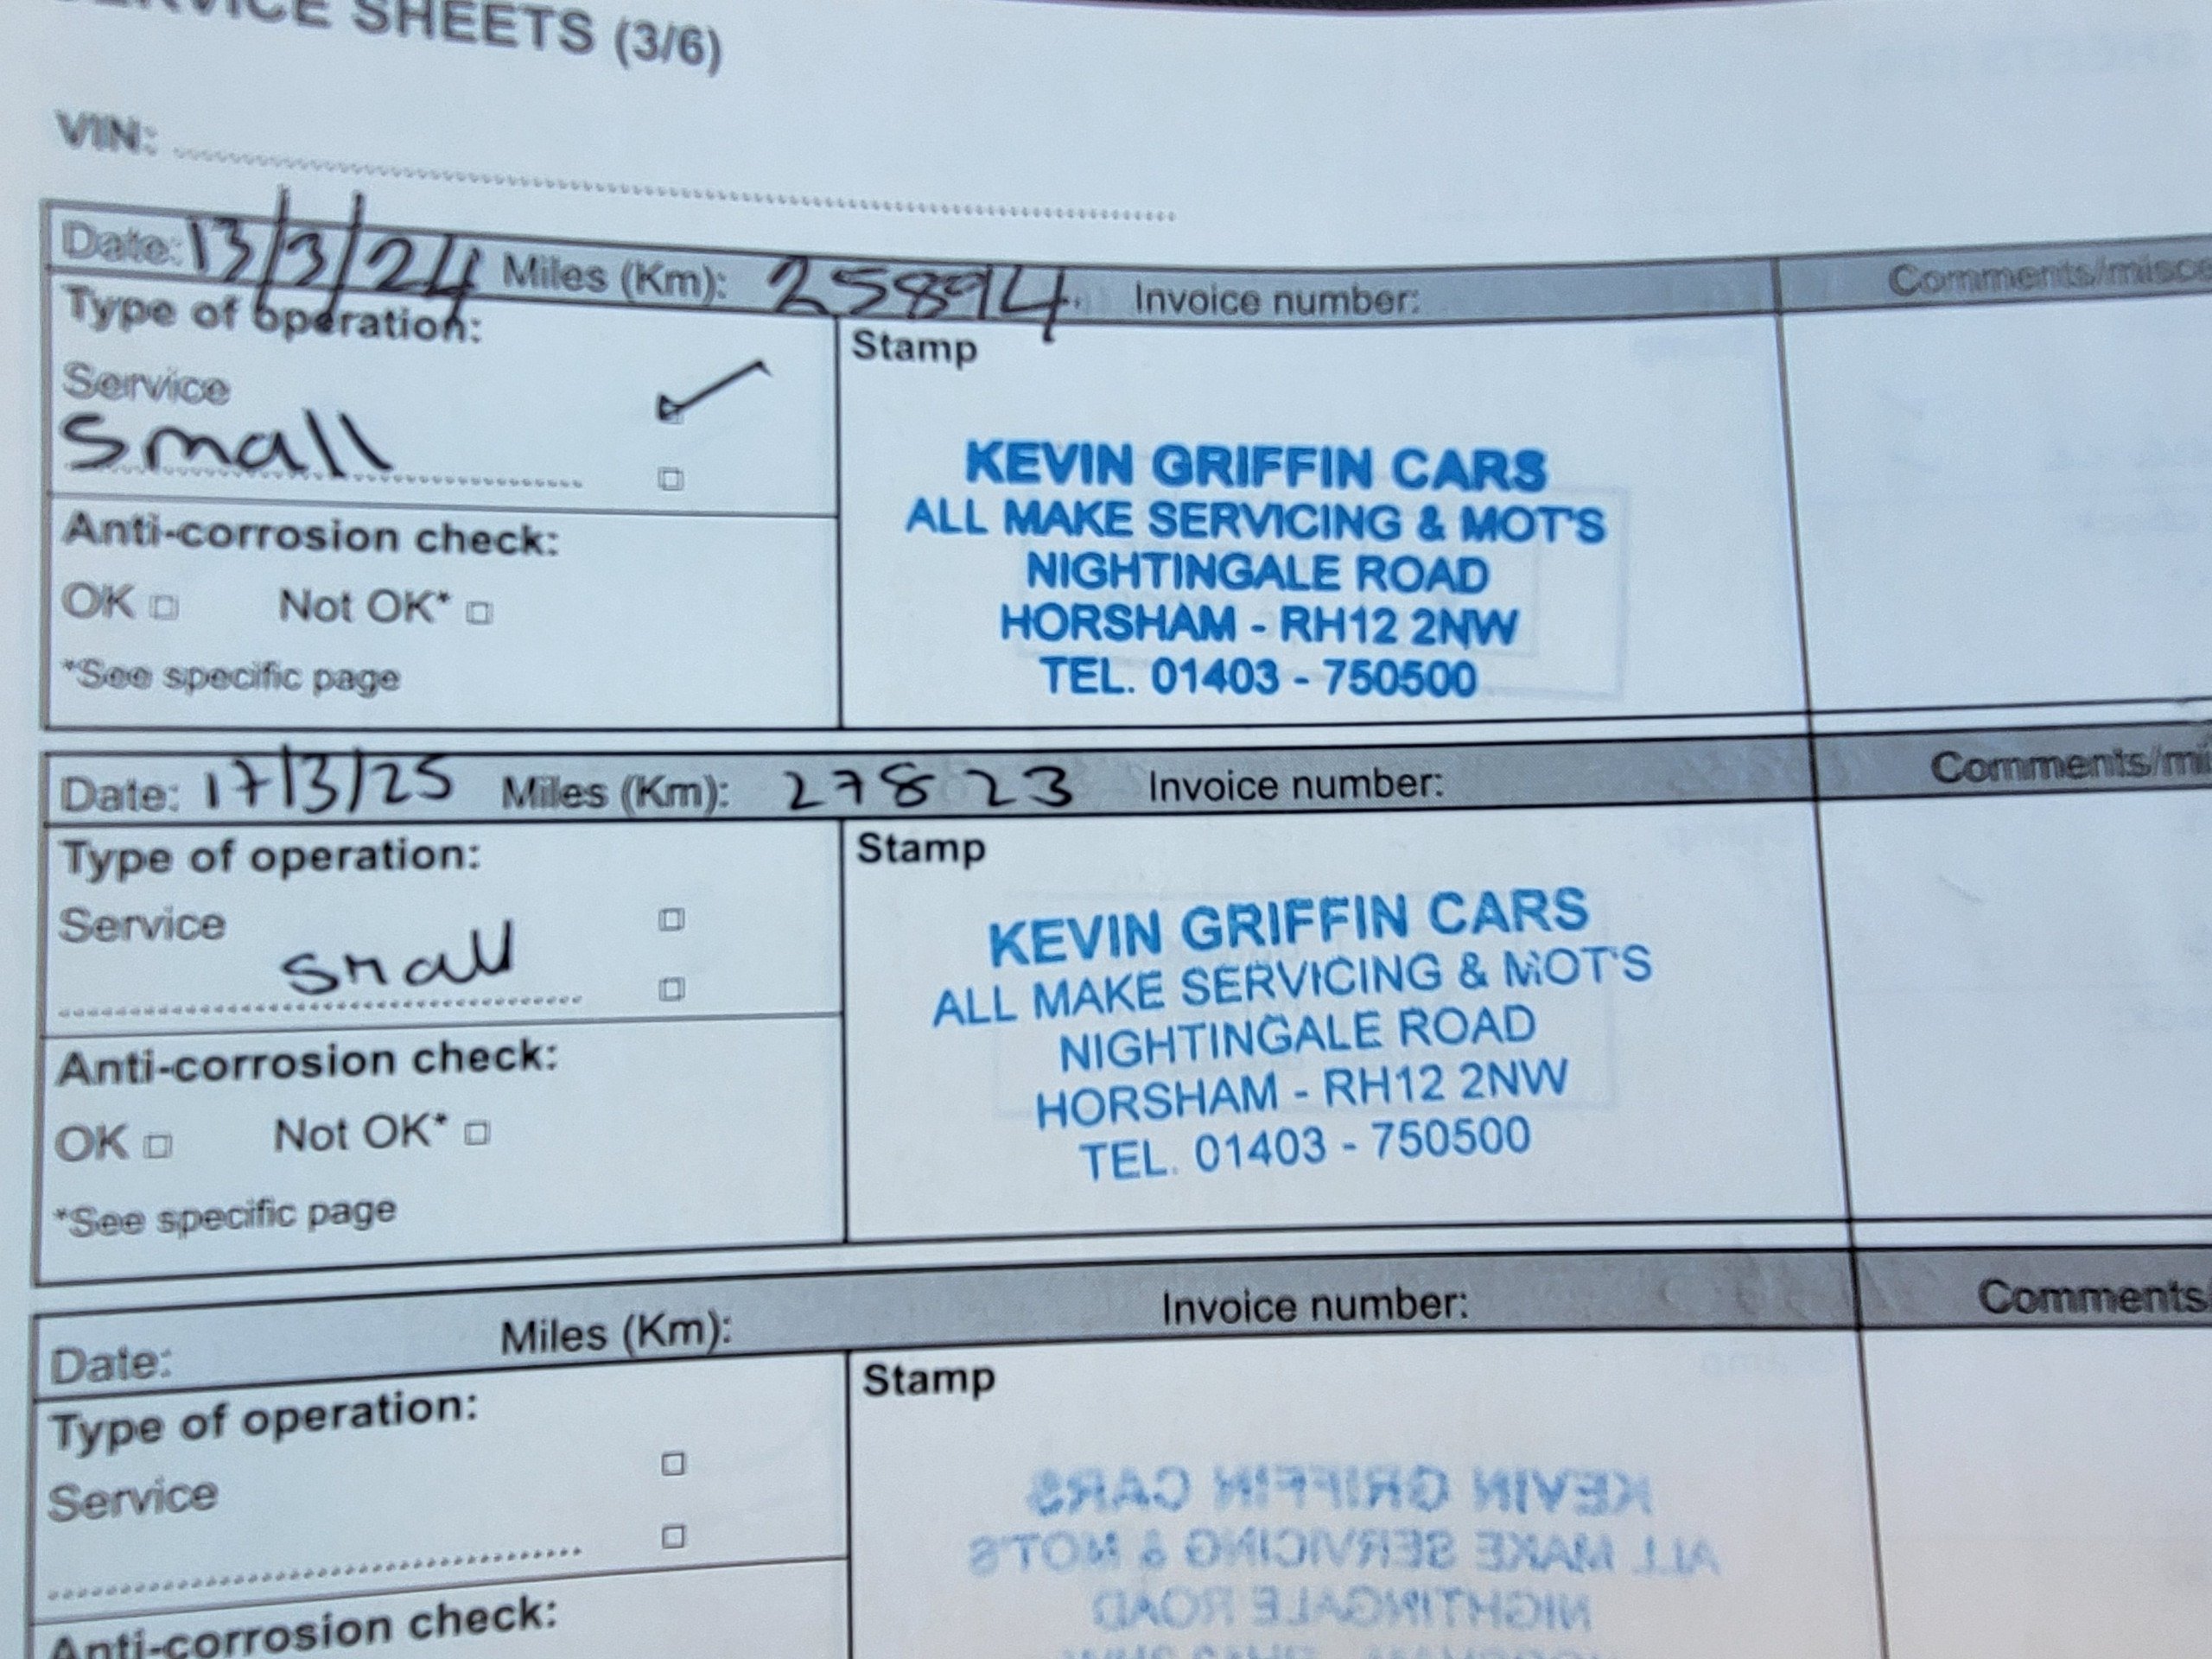 SERVICE SHEETS (3/6)
VIN:
Date: 13/3/24 Miles (Km): 25894 Invoice number:
Type of operation:
Service
Small
Anti-corrosion check:
OK Not OK*
*See specific page
Stamp
KEVIN GRIFFIN CARS
ALL MAKE SERVICING & MOT'S
NIGHTINGALE ROAD
HORSHAM - RH12 2NW
TEL. 01403 - 750500
Date: 17/3/25 Miles (Km): 27823 Invoice number:
Type of operation:
Service
small
Anti-corrosion check:
OK Not OK*
*See specific page
Stamp
KEVIN GRIFFIN CARS
ALL MAKE SERVICING & MOT'S
NIGHTINGALE ROAD
HORSHAM - RH12 2NW
TEL. 01403 - 750500
Date: Miles (Km): Invoice number: Comments/
Type of operation:
Service
Anti-corrosion check:
Stamp
KEVIN GRIFFIN CARS
ALL MAKE SERVICING & MOT'S
NIGHTINGALE ROAD